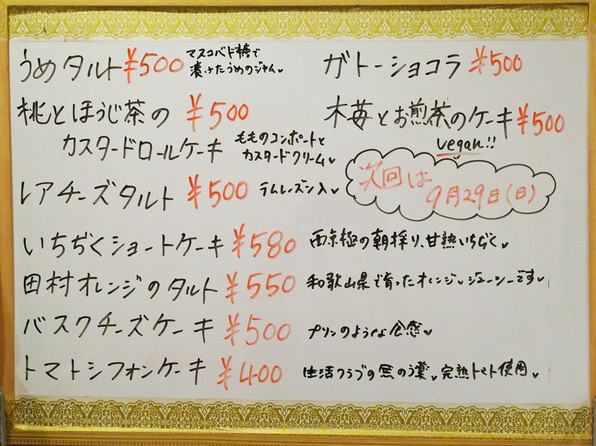 うめタルト ¥500 マスコバド糖で
漬けたうめのジャム
桃とほうじ茶の ¥500
カスタードロールケーキ もものコンポートと
カスタードクリーム
レアチーズタルト ¥500 ラムレーズン入
いちぢくショートケーキ ¥580 西京極の朝採り、甘熟いちぢく
田村オレンジのタルト ¥550 和歌山県で育ったオレンジ ジューシーです
バスクチーズケーキ ¥500 プリンのような食感
トマトシフォンケーキ ¥400 生活クラブの 完熟トマト使用
ガトーショコラ ¥500
木苺とお煎茶のケーキ ¥500
vegan!!
次回は
9月29日(日)